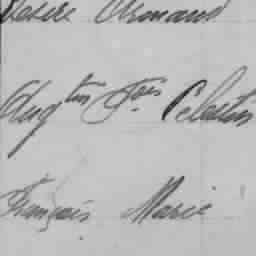 Désiré Armand
Aug^tin F^ois Célestin
François Marie